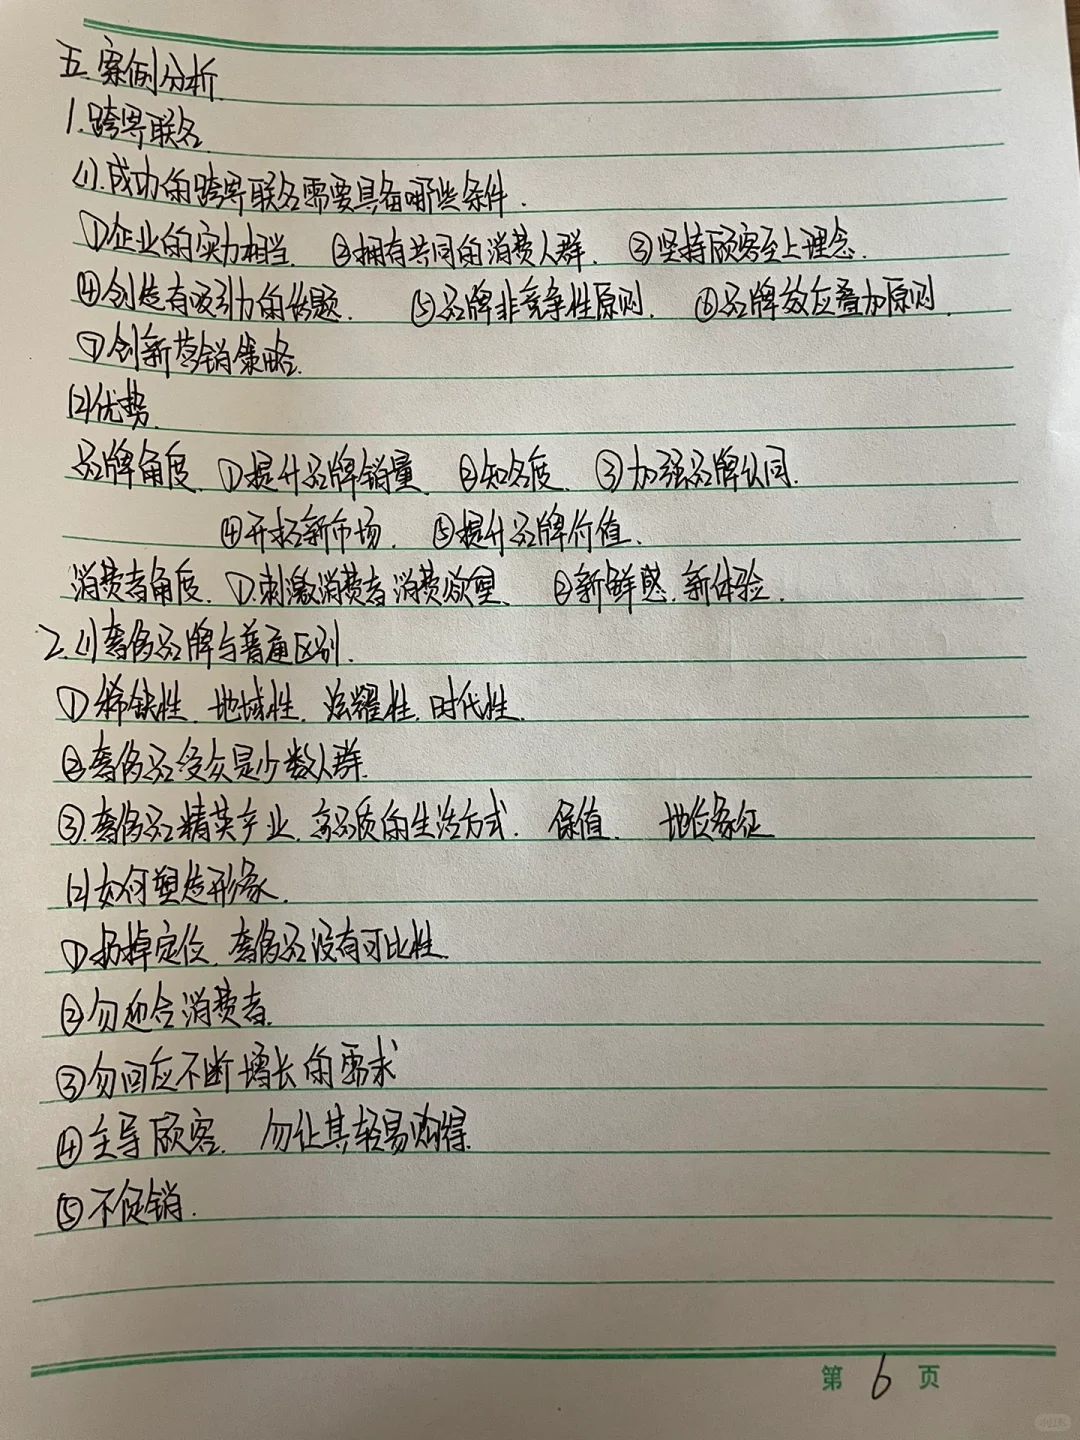 五.案例分析.
1.跨界联名.
(1).成功的跨界联名需要具备哪些条件.
①企业的实力相当. ②拥有共同的消费人群. ③坚持顾客至上理念.
④创造有吸引力的话题. ⑤品牌非竞争性原则. ⑥品牌效应叠加原则.
⑦创新营销策略.
(2)优势.
品牌角度. ①提升品牌销量. ②知名度. ③加强品牌认同.
④开拓新市场. ⑤提升品牌价值.
消费者角度. ①刺激消费者消费欲望. ②新鲜感.新体验.
2.(1)奢侈品牌与普通区别.
①稀缺性.地域性.炫耀性.时代性.
②奢侈品受众是少数人群.
③.奢侈品精英产业.高品质的生活方式. 保值. 地位象征
(2)如何塑造形象.
①扔掉定位.奢侈品没有可比性.
②勿迎合消费者.
③勿回应不断增长的需求
④主导顾客. 勿让其轻易购得.
⑤不促销.
第 6 页